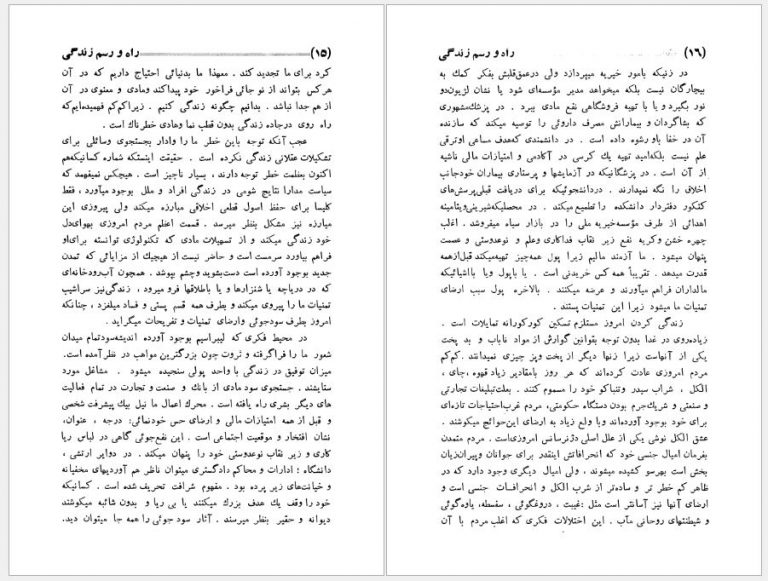 (۱۵) راه و رسم زندگی
کرد برای ما تجدید کند . معهذا ما بدنیائی احتیاج داریم که در آن
هرکس بتواند از نو جائی فراخور خود پیداکند ومادی و معنوی در آن
از هم جدا نباشد . بدانیم چگونه زندگی کنیم . زیرا کم کم فهمیده‌ایم که
راه روی درجاده زندگی بدون قطب نما وهادی خطرناك است .
عجب آنکه توجه باین خطر ما را وادار بجستجوی وسائلی برای
تشکیلات عقلانی زندگی نکرده است . حقیقت اینستکه شماره کسانیکه هم
اکنون بعظمت خطر توجه دارند ، بسیار ناچیز است . هیچکس نمیفهمد که
سیاست مدارا نتایج شومی در زندگی افراد و ملل بوجود میآورد ، فقط
کلیسا برای حفظ اصول قطعی اخلاقی مبارزه میکند ولی پیروزی این
مبارزه نیز مشکل بنظر میرسد . قسمت اعظم مردم امروزی بهوای دل
خود زندگی میکند و از تسهیلات مادی که تکنولوژی توانسته برای او
فراهم بیاورد سرمست است و حاضر نیست از هیچیك از مزایائی که تمدن
جدید بوجود آورده است دست بشوید وچشم بپوشد . همچون آب رودخانه‌ای
که در دریاچه یا شنزارها و یا باطلاقها فرو میرود ، زندگی نیز سراشیب
تمنیات ما را پیروی میکند و بطرف همه قسم پستی و فساد میلغزد ، چنانکه
امروز بطرف سودجوئی وارضای تمنیات و تفریحات میگراید .
در محیط فکری که لیبرالیسم بوجود آورده اندیشه سود تمام میدان
شعور ما را فرا گرفته و ثروت چون بزرگترین مواهب در نظر آمده است .
میزان توفیق در زندگی با واحد پولی سنجیده میشود . مشاغل مورد
ستایشند . جستجوی سود مادی از بانك و صنعت و تجارت در تمام فعالیت
های دیگر بشری راه یافته است . محرك اعمال ما نیل بیك پیشرفت شخصی
و قبل از همه امتیازات مالی و ارضای حس خودنمائی: درجه ، عنوان،
نشان افتخار و موقعیت اجتماعی است . این نفع جوئی گاهی در لباس ریا
کاری و زیر نقاب نوعدوستی خود را پنهان میکند . در دوایر ارتشی ،
دانشگاه ؛ ادارات و محاکم دادگستری میتوان ناظر هم آوردیهای مخفیانه
و خیانت‌های زیر پرده بود . مفهوم شرافت تحریف شده است . کسانیکه
خود را وقف یك هدف بزرگ میکنند یا بی ریا و بدون شائبه میکوشند
دیوانه و حقیر بنظر میرسند . آثار سود جوئی را همه جا میتوان دید.
(۱۶) راه و رسم زندگی
در زنیکه بامور خیریه میپردازد ولی درعمق قلبش بفکر کمك به
بیچارگان نیست بلکه میخواهد مدیر مؤسسه‌ای شود یا نشان لژیون دو
نور بگیرد و یا با تهیه فروشگاهی نفع مادی ببرد . در پزشك مشهوری
که بشاگردان و بیمارانش مصرف داروئی را توصیه میکند که سازنده
آن در خفا باو رشوه داده است . در دانشمندی که هدف مساعی او ترقی
علم نیست بلکه امید تهیه یك کرسی در آکادمی و امتیازات مالی ناشیه
از آن است . در پزشگانیکه در آزمایشها و پرستاری بیماران خود جانب
اخلاق را نگه نمیدارند . در دانشجوئیکه برای دریافت قبلی پرسش‌های
کنکور دفتردار دانشکده را تطمیع میکند . در محصلیکه شیرینی ویتامینه
اهدائی از طرف مؤسسه خیریه ملی را در بازار سیاه میفروشد . اغلب
چهره خشن وکریه نفع زیر نقاب فداکاری وعلم و نوعدوستی و عصمت
پنهان میشود . ما آزمند مالیم زیرا پول همه چیز تهیه میکند قبل از همه
قدرت میدهد . تقریباً همه کس خریدنی است . با پول ویا باشیائیکه
مالداران فراهم میآورند و عرضه میکنند . بالاخره پول سبب ارضای
تمنیات ما میشود زیرا این تمنیات پستند .
زندگی کردن امروز مستلزم تسکین کورکورانه تمایلات است .
زیاده‌روی در غذا بدون توجه بقوانین گوارش از مواد نایاب و بد پخت
یکی از آنهاست زیرا زنها دیگر از پخت وپز چیزی نمیدانند . کم کم
مردم امروزی عادت کرده‌اند که هر روز بامقادیر زیاد قهوه ، چای ،
الکل ، شراب سیدر وتنباکو خود را مسموم کنند . بعلت تبلیغات تجارتی
و صنعتی و شریك جرم بودن دستگاه حکومتی، مردم غرب احتیاجات تازه‌ای
برای خود بوجود آورده‌اند وبا ولع زیاد به ارضای این حوائج میکوشند .
عشق الکل نوشی یکی از علل اصلی دژنرسانس امروزی است . مردم متمدن
بفرمان امیال جنسی خود که انحرافاتش اینقدر برای جوانان وپیران زیان
بخش است بهرسو کشیده میشوند ، ولی امیال دیگری وجود دارد که در
ظاهر کم خطر تر و ساده‌تر از شرب الکل و انحرافات جنسی است و
ارضای آنها نیز آسانتر است مثل :غیبت ، دروغگوئی ، سفسطه، یاوه گوئی
و شیطنتهای روحانی مآب . این اختلالات فکری که اغلب مردم با آن